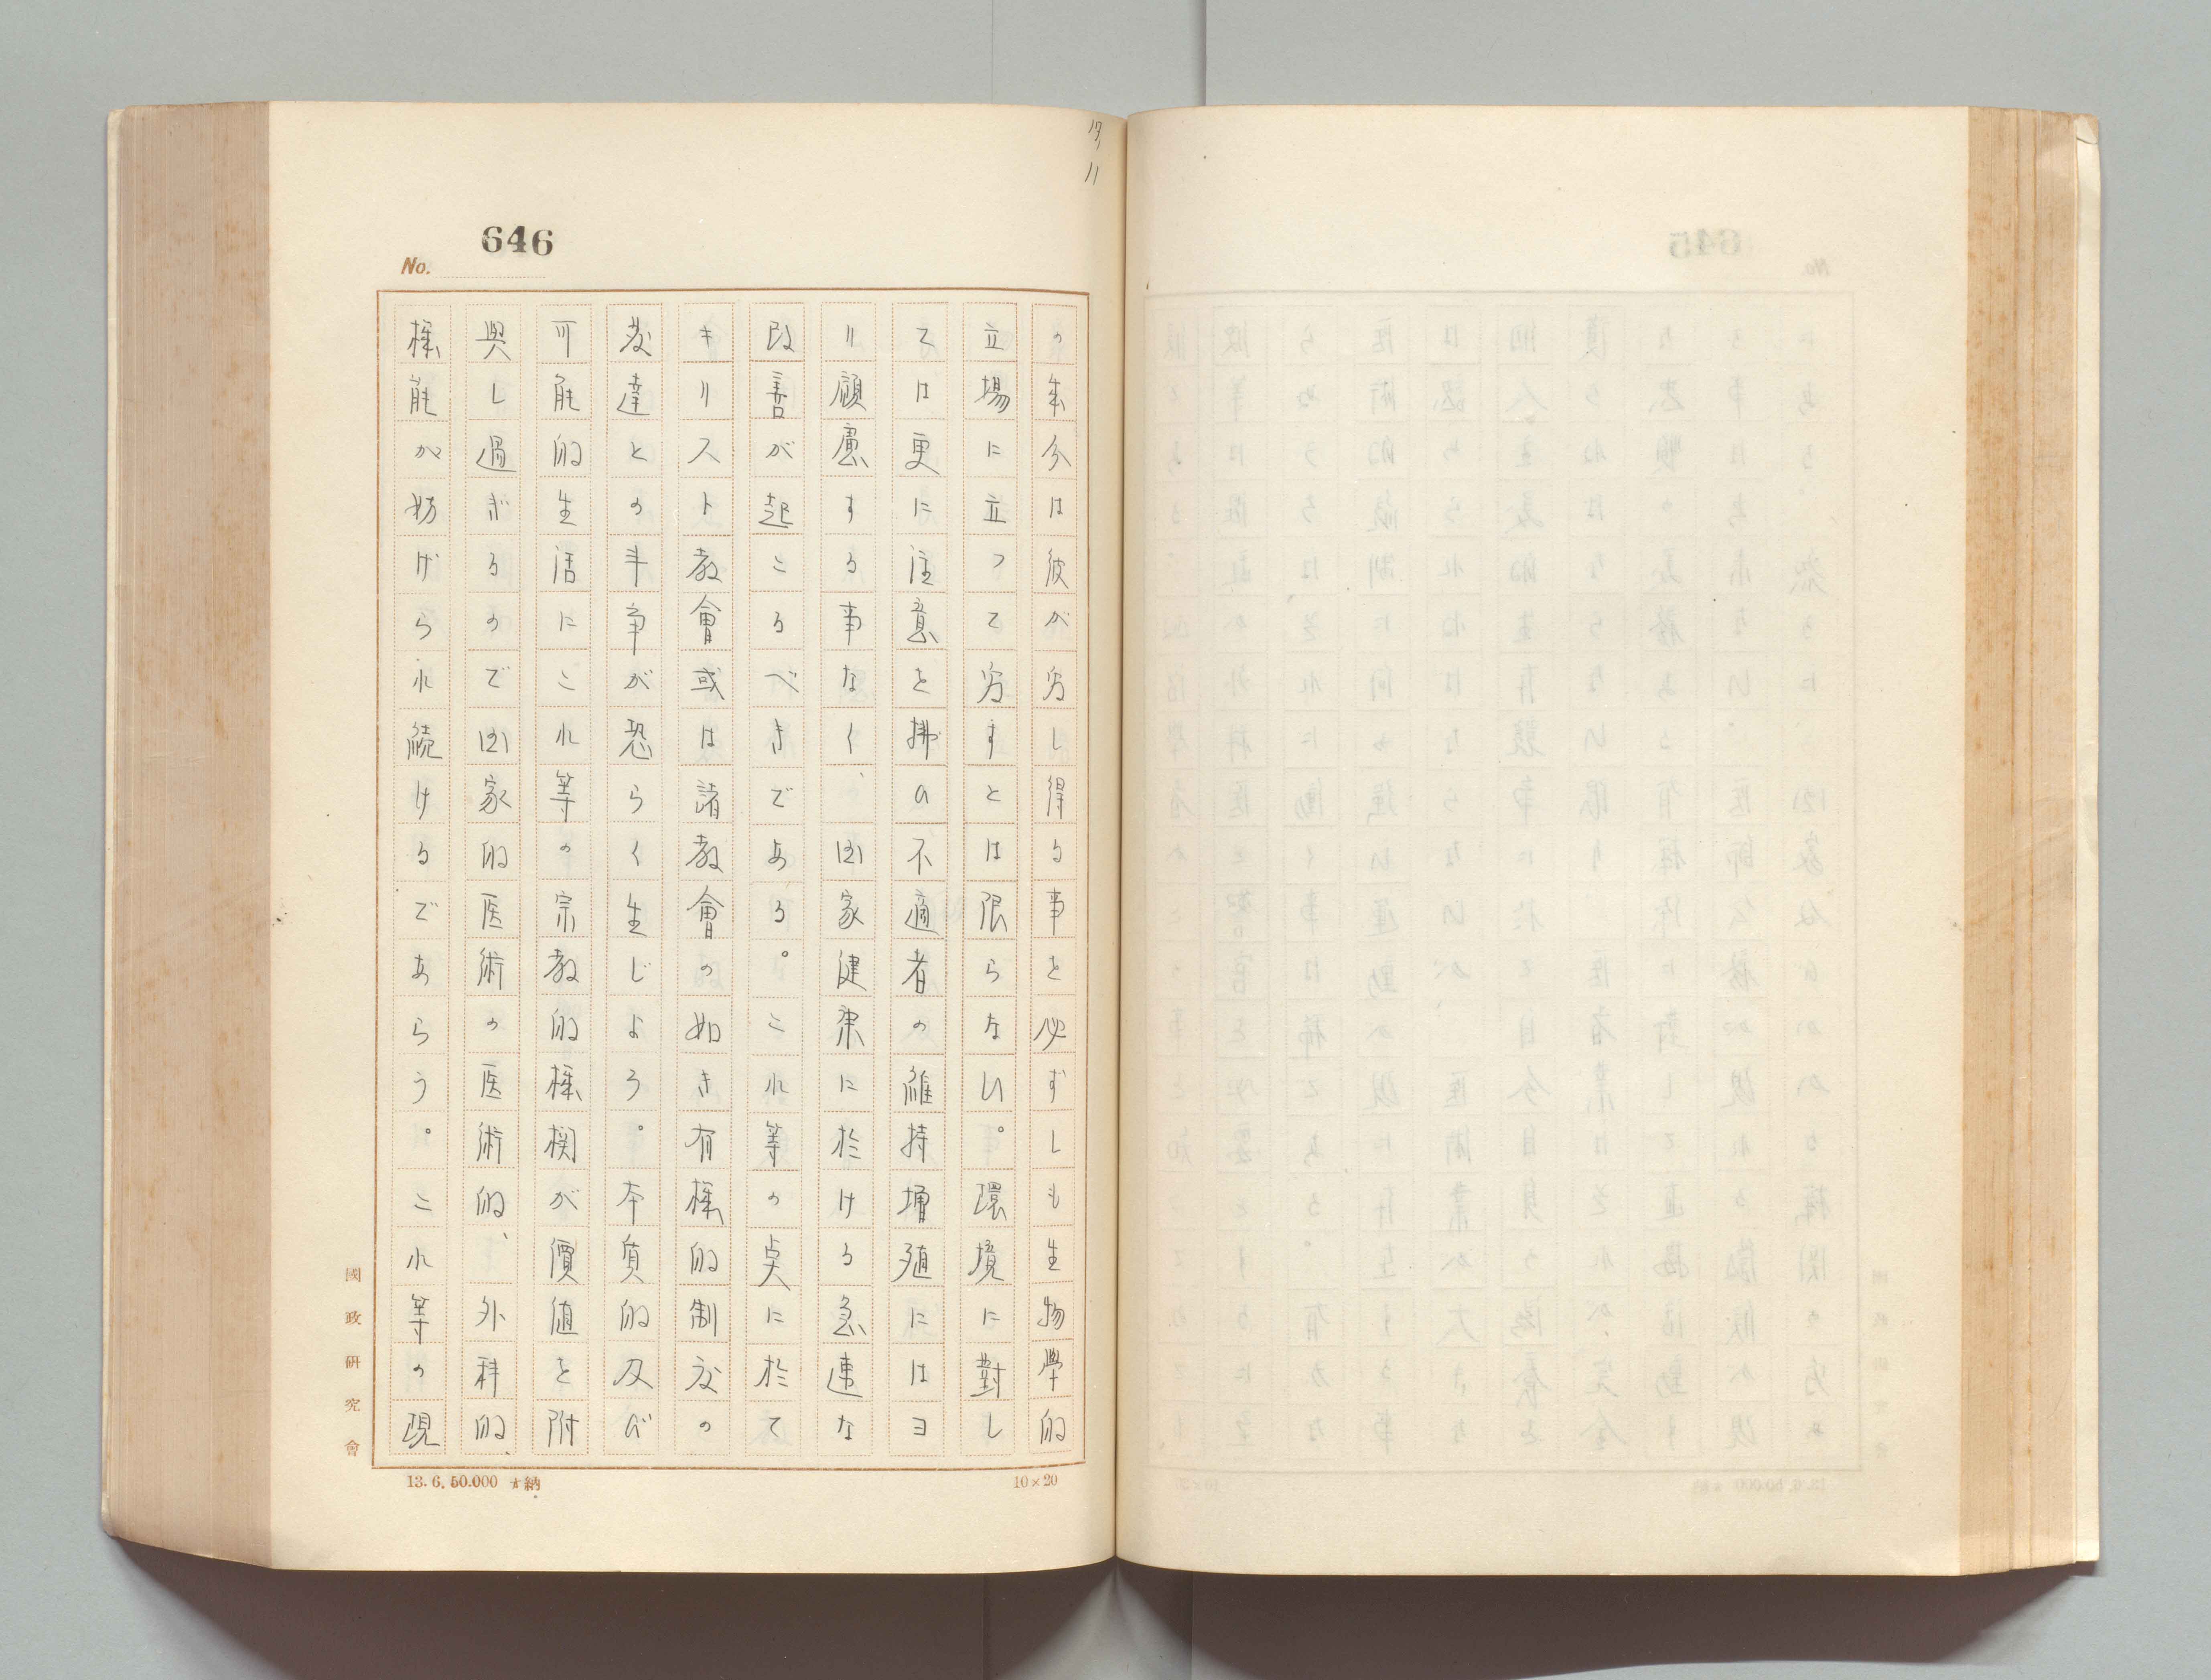 17, 11
646
No.
の本分は彼が为し得る事を必ずしも生物學的
立場に立つて为すとは限らない。環境に對し
ては更に注意を拂ひ不適者の維持増殖にはヨ
リ顧慮する事なく、国家健康に於ける急速な
改善が起こるべきである。これ等の点に於て
キリスト教會或は諸教會の如き有機的制度の
発達との斗争が恐らく生じよう。本質的及び
可能的生活にこれ等の宗教的機関が價値を附
與し過ぎるので国家的医術の医術的、外科的
機能が妨げられ続けるであらう。これ等の現
國政研究會
10×20
13.6.50.000 納